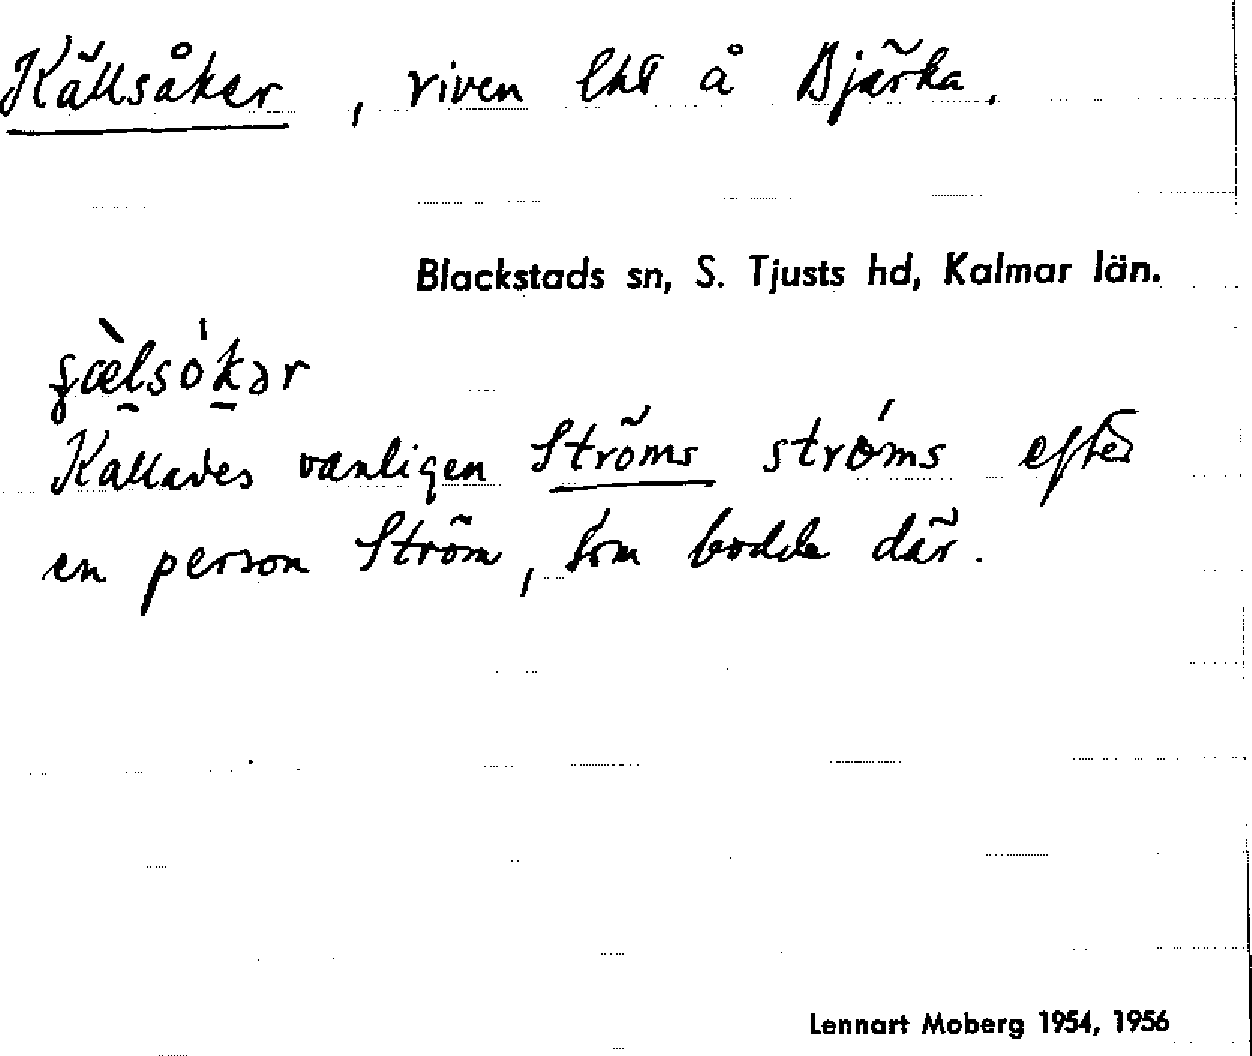 Källsåker, riven lht å Bjärka.
Blackstads sn, S. Tjusts hd, Kalmar län.
Kallades vanligen Ströms strøms efter
en person Ström, som bodde där.
Lennart Moberg 1954, 1956